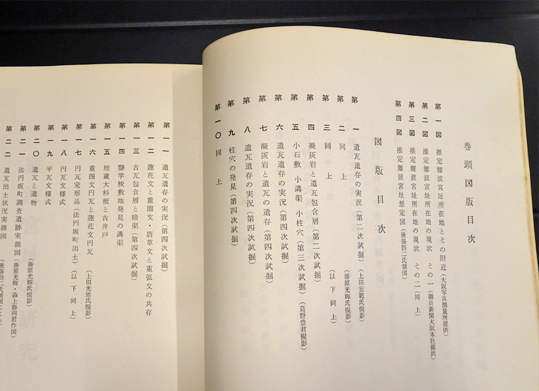 巻頭図版目次
第一図 推定難波宮址所在地とその附近(大阪写真製版所提供)
第二図 推定難波宮址所在地の現状 その一(朝日新聞大阪本社提供)
第三図 推定難波宮址所在地の現状 その二(同上)
第四図 推定難波宮址想定図
図版目次
第一 遺瓦遺存の実況(第二次試掘)(上田宏範氏撮影)
第二 同上(藤原光輝氏撮影)
第三 同上(以下同上)
第四 凝灰岩と遺瓦包含層(第二次試掘)
第五 小石敷 小溝渠 小柱穴(第三次試掘)
第六 遺瓦遺存の実況(第四次試掘)
第七 凝灰岩と遺瓦の遺存(第四次試掘)
第八 遺瓦遺存の実況(第四次試掘)
第九 柱穴の発見(第四次試掘)
第一〇 同上
第一一 遺瓦遺存の実況(第四次試掘)
第一二 蓮花文と重圏文・唐草文と重弧文の共存
第一三 古瓦包含層と暗渠(第四次試掘)
第一四 聾学校敷地発見の溝渠
第一五 埋蔵大科板と古井戸
第一六 重圏文円瓦と蓮花文円瓦
第一七 円瓦完形品(法円坂町出土)(以下同上)
第一八 円瓦文様式
第一九 平瓦文様式
第二〇 遺瓦と遺物
第二一 法円坂町調査遺跡実測図
第二二 遺瓦出土状況実測図